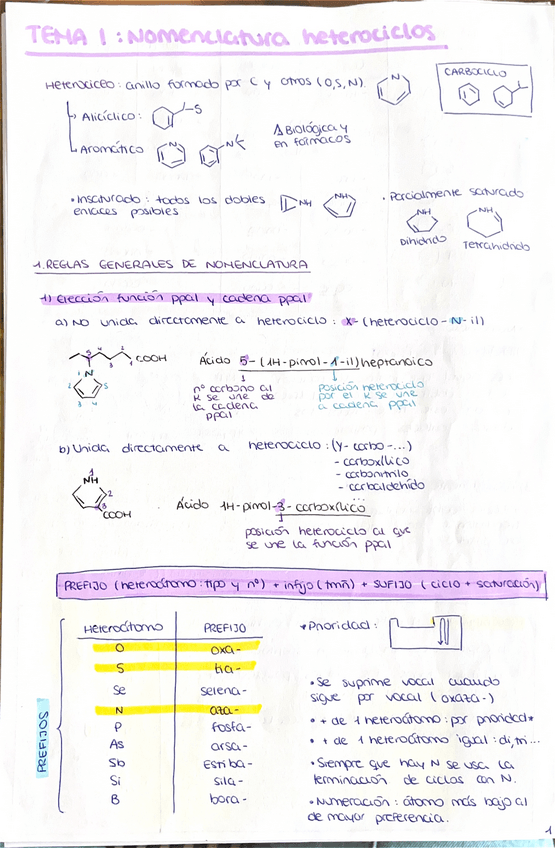 TEMA 1: Nomenclatura heterociclos
Heterociclo: anillo formado por C y otros (O, S, N).
N
CARBOCICLO
↳ Alicíclico:
S
↳ Aromático
N
N
Δ Biológica y
en fármacos
• Insaturado: todos los dobles
enlaces posibles
NH
NH
• Parcialmente saturado
NH
Dihidrido
NH
Tetrahidrido
1. REGLAS GENERALES DE NOMENCLATURA
1) Elección función ppal y cadena ppal
a) No unida directamente a heterociclo: X-(heterociclo-N-il)
5 4 2 3 1 COOH
N
1
2 5
3 4
Ácido 5-(1H-pirrol-1-il)heptanoico
nº carbono al
k se une de
la cadena
ppal
posición heterociclo
por el k se une
a cadena ppal
b) Unida directamente a heterociclo: (Y-carbo-...)
- carboxílico
- carbonitrilo
- carbaldehído
1
NH
2
3
COOH
Ácido 1H-pirrol-3-carboxílico
posición heterociclo al que
se une la función ppal
PREFIJO (heteroátomo: tipo y nº) + infijo (tmñ) + SUFIJO (ciclo + saturación)
PREFIJOS
Heteroátomo PREFIJO
O oxa-
S tia-
Se selena-
N aza-
P fosfa-
As arsa-
Sb Estiba-
Si sila-
B bora-
*Prioridad:
• Se suprime vocal cuando
sigue por vocal (oxaza-)
• + de 1 heteroátomo: por prioridad*
• + de 1 heteroátomo igual: di, tri...
• Siempre que hay N se usa la
terminación de ciclos con N.
• Numeración: átomo más bajo al
de mayor preferencia.
1